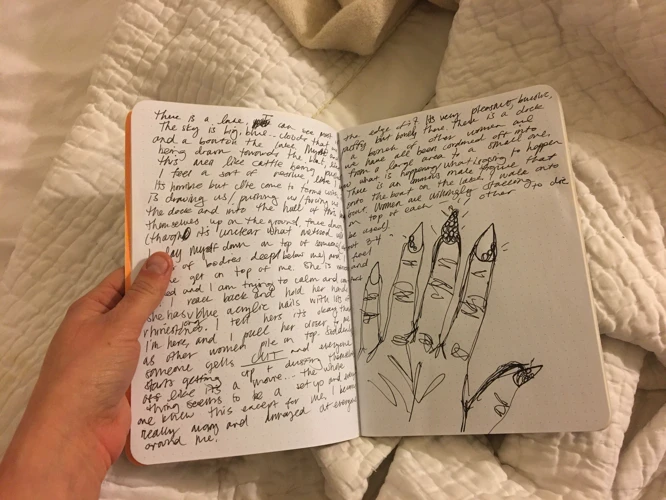 there is a lake, I can see
The sky is big, blue... clouds that
and a boat on the lake. Myself and
being drawn towards the boat, like
this area like cattle being
I feel a sort of passive, like I
Its horrible but I've come to terms with
is drawing us / pulling us / forcing us
the dock and into the hull of this
themselves up on the ground, three deep
(though it's unclear what method
lay myself down on top of someone
of bodies deep below me) and
get on top of me. She is
and I am trying to calm and
reach back and hold her hand
She has blue acrylic nails with lots of
rhinestones. I tell hers its okay that
I'm here, and I pull her closer to me
as other women pile on top. Suddenly
someone yells CUT and everyone
starts getting up + dusting themselves
its like its a movie... the whole
thing seems to be a set up and every
one knew this except for me, I become
really angry and enraged at everyone
around me!
the edge of it. Its very pleasant, bucolic,
pretty but lonely there. There is a dock
a bunch of other women and
we have all been corralled off into
from a large area to a small one,
what is happening, what is going to happen
There is an ominous male figure that
onto the boat on the lake, I wait onto
our women are willingly stacking
on top of each other to die
be used).
about 3-4
feel
and